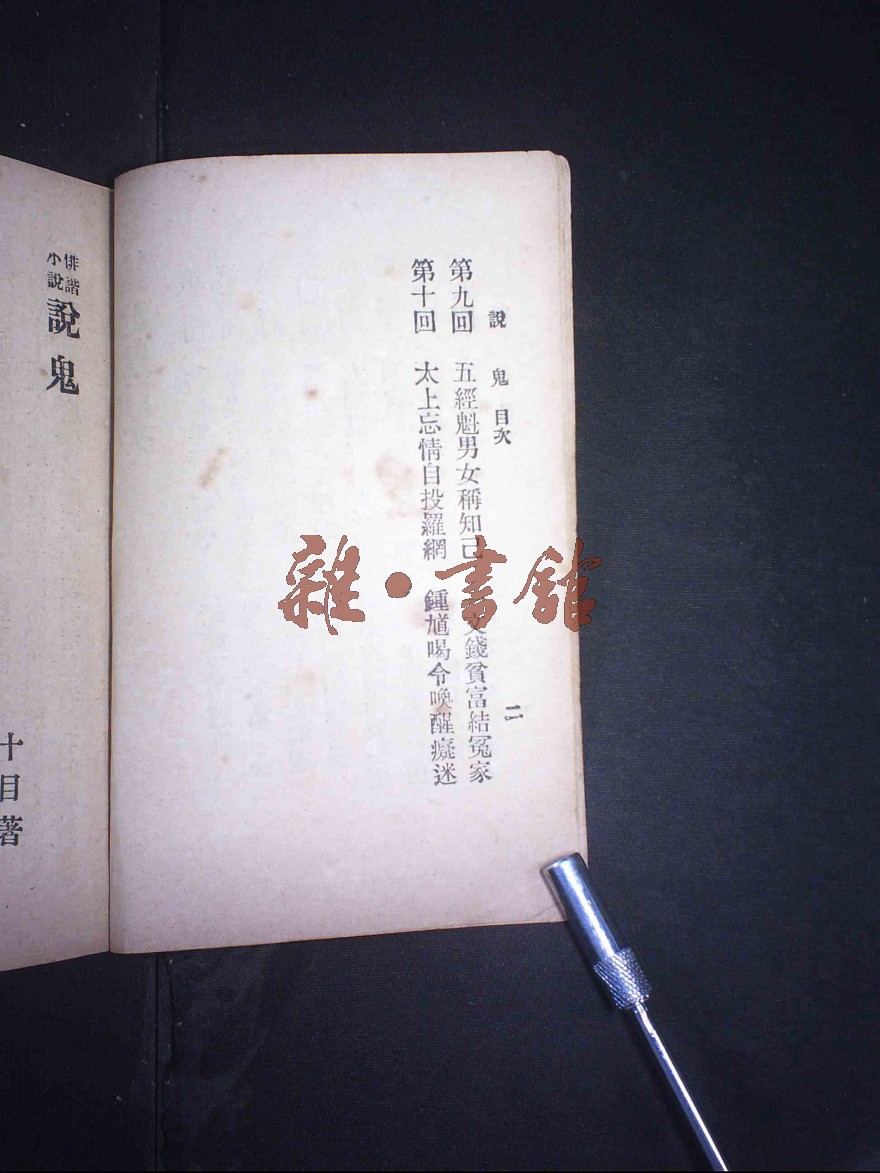 說鬼 目次 二
第九回 五經魁男女稱知己 文錢貧富結冤家
第十回 太上忘情自投羅網 鍾馗喝令喚醒癡迷
俳諧小說 說鬼
十目著
雜·書館